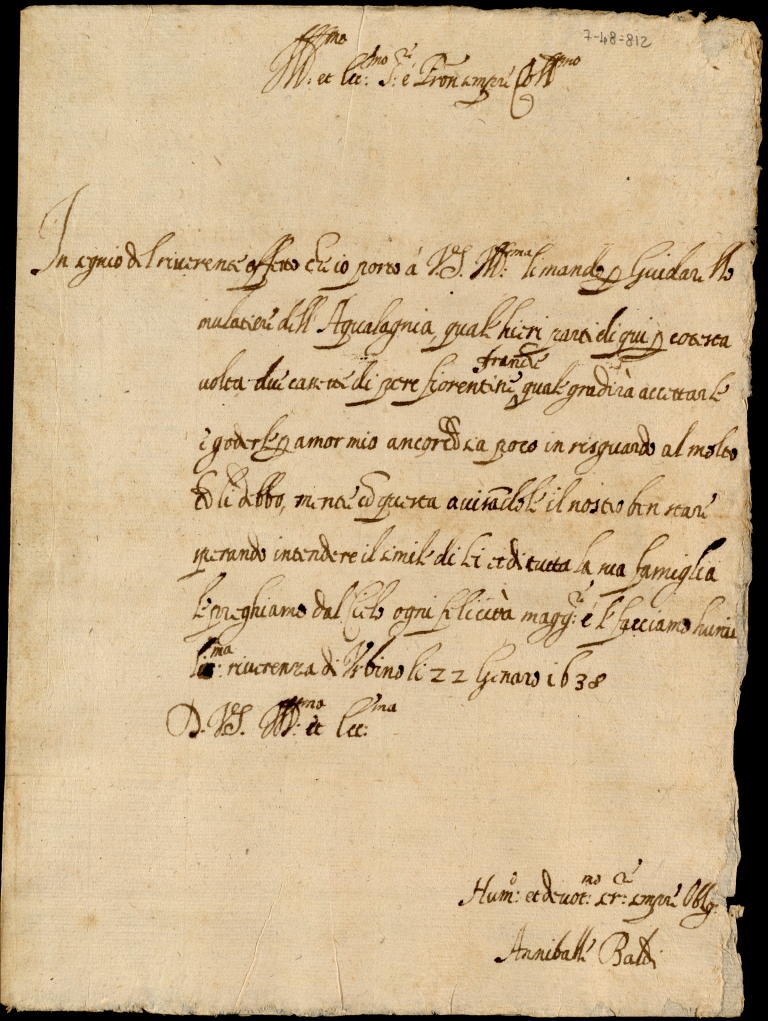 7-48-812
Ill.mo et Ecc.mo S.re é Pron sempre Coll.mo
In segnio del riverente affetto che io porto á V.S. Ill.ma li mando p Guidarello
mulatiere dell Aqualagnia, quale hieri parti di qui p cotesta
volta due cassette di pere fiorentine franche quale gradirà accettarle
e goderle p amor mio ancorche sia poco in risguardo al molto
che li debbo, mentre con questa avisandole il nostro ben stare
sperando intendere il simile di lei et di tutta la sua famiglia
le preghiamo dal Cielo ogni felicità magg.re é le facciamo humi
liss.ma riverenza di Urbino li 22 Genaro 1638
D. V.S. Ill.mo et Ecc.ma
Hum.o et devot.mo ser.re sempre Oblg.
Anniballe Baldi